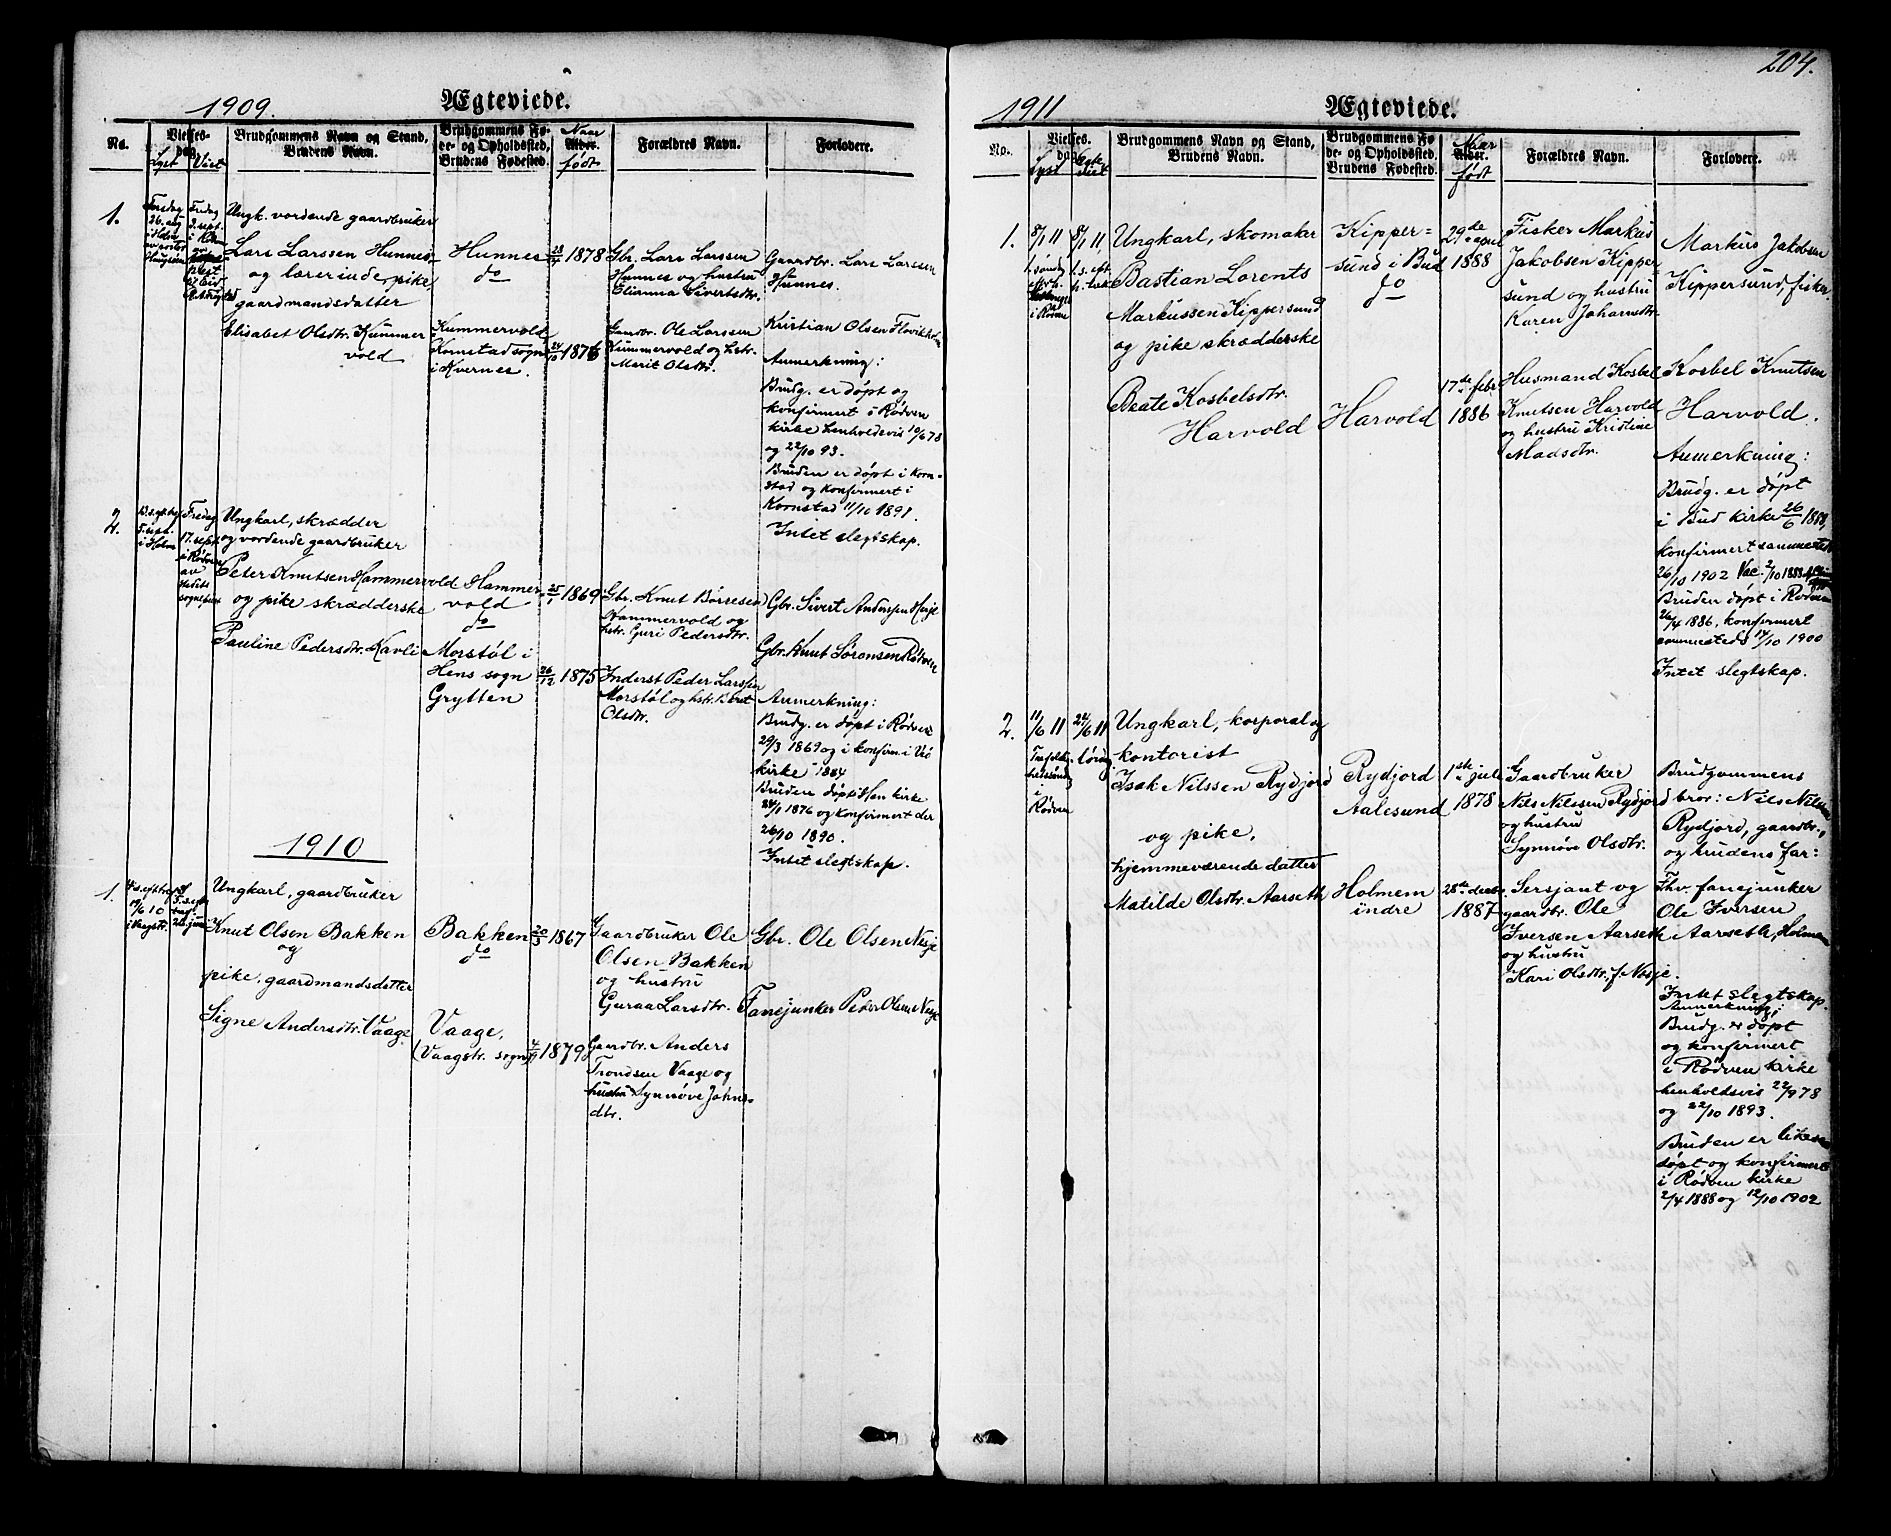 204.
1909.
Ægteviede.
No.
Vielses-
dag
Lyst
Viet
Brudgommens Navn og Stand,
Brudens Navn.
Brudgommens Fø-
de- og Opholdssted,
Brudens Fødested.
Naar
Alder.
født
Forældres Navn.
Forlovere.
1.
26. aug
Ungk. vordende gaardbruker
Lars Larssen Hunnes
og lærerinde, pike
gaardmandsdatter
Elisabet Olsdtr. Kummer
vold
Hunnes
do
Kummervold
Kornstad sogn
i Kvernes.
1878
24/10 1876
Gbr. Lars Larssen
Hunnes og hustru
Elianna Sivertsdtr.
Gaardbr. Ole Larssen
Kummervold og hstr.
Marit Olsdtr.
Gaardbr. Lars Larssen
Hunnes.
Kristian Olsen Flovikholm
Anmerkning:
Brudg. er døpt og
konfirmert i Rødven
kirke henholdsvis 10/6 78
og 22/10 93.
Bruden er døpt i Korn-
stad og konfirmert i
Kornstad 11/10 1891.
Intet slegtskap.
2.
i Holm
Fredag
17. sept.
i Rødven
av
stedets
sogneprest
Ungkarl, skrædder
og vordende gaardbruker
Peter Knutsen Hammervold
og pike skrædderske
Pauline Pedersdtr. Kavli
Hammer-
vold
do
Morstøl i
Hens sogn
Grytten
25/1 1869
26/12 1875
Gbr. Knut Børresen
Hammervold og
hstr. Guri Pedersdtr.
Inderst Peder Larssen
Morstøl og hstr. Beret
Olsdtr.
Gbr. Sivert Andersen Herje
Gbr. Knut Sørensen Rødven
Anmerkning:
Brudg. er døpt i Rødven
29/3 1869 og i konfirm. i Veø
kirke 1884
Bruden døpt i Hen kirke
28/1 1876 og konfirmert der
26/10 1890.
Intet slegtskap.
1910
1.
19/6 10
Ungkarl, gaardbruker
Knut Olsen Bakken
og
pike, gaardmandsdatter
Signe Andersdtr. Vaage.
Bakken
do
Vaage,
(Vaagstr. sogn)
20/3 1867
1879
Gaardbruker Ole
Olsen Bakken
og hustru
Guraa Larsdtr.
Gaardbr. Anders
Trondsen Vaage og
hustru Synnøve Johns-
dtr.
Gbr. Ole Olsen Nesje
Fanejunker Peder Olsen Nesje
1911
Ægteviede.
No.
Vielses-
dag
Lyst
Ægte
viet
Brudgommens Navn og Stand,
Brudens Navn.
Brudgommens Fø-
de- og Opholdssted,
Brudens Fødested.
Naar
Alder.
født
Forældres Navn.
Forlovere.
1.
8/1 11
1. søndag
i Rødven
8/1 11
Ungkarl, skomaker
Bastian Lorents
Markussen Kippersund
og pike skrædderske
Beate Kosbelsdtr.
Harvold
Kipper=
sund i Bud
do
Harvold
29de
1888
17de febr.
1886
Fisker Markus
Jakobsen Kipper=
sund og hustru
Karen Johansdtr.
Husmand Kosbel
Knutsen Harvold
og hustru Kristine
Madsdtr.
Markus Jakobsen
Kippersund, fisker
Kosbel Knutsen
Harvold.
Anmerkning:
Brudg. er døpt
i Bud kirke 26/6 1888,
konfirmert sammesteds
26/10 1902 Vac. 2/10 1888
Bruden døpt i Rødven
26/4 1886, konfirmert
sammesteds 14/10 1900
Intet slegtskap.
2.
11/6 11
Trefoldig-
hetssøndag
i
Rødven
24/6 11
lørdag
Ungkarl, korporal og
kontorist
Isak Nilssen Rydjord
og pike,
hjemmeværende datter
Matilde Olsdtr. Aarseth
Rydjord
Aalesund
Holmem
indre
1ste juli
1878
28de decbr
1887
Gaardbruker
Nils Nilssen Rydjord
og hustru
Synnøve Olsdtr.
Sersjant og
gaardbr. Ole
Iversen Aarseth
og hustru
Kari Olsdtr. f. Nesje.
Brudgommens
bror: Nils Nilssen
Rydjord, gaardbr.,
og brudens far:
Fhv. fanejunker
Ole Iversen
Aarseth, Holmem
Intet slegtskap.
Anmerkning:
Brudg. er døpt
og konfirmert
i Rødven kirke
henholdsvis 22/9 78
og 22/10 1893.
Bruden er likesaa
døpt og konfirmert
i Rødven kirke
2/4 1888 og 12/10 1902